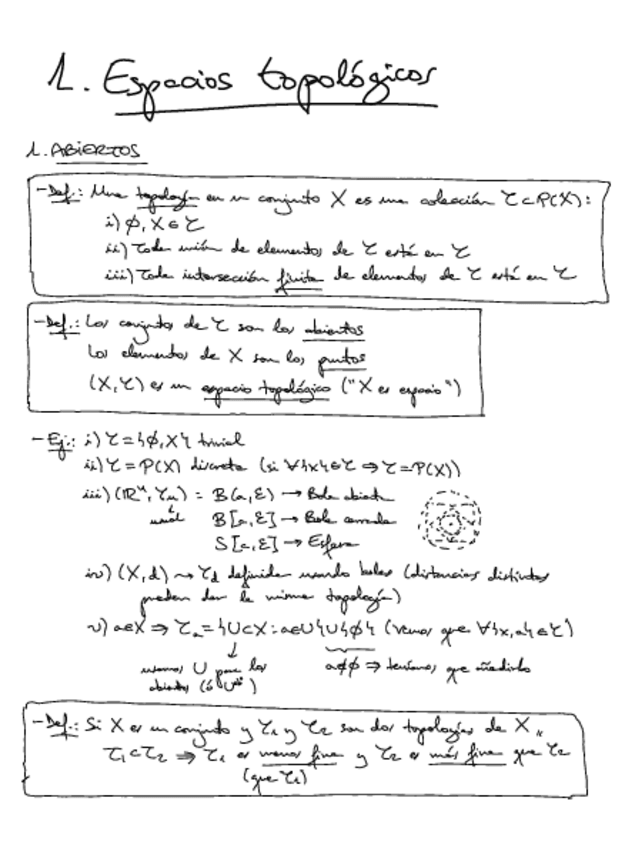 1. Espacios topológicos
1. ABIERTOS
- Def.: Una topología en un conjunto X es una colección τ⊂P(X):
i) ∅, X ∈ τ
ii) Toda unión de elementos de τ está en τ
iii) Toda intersección finita de elementos de τ está en τ
- Def.: Los conjuntos de τ son los abiertos
Los elementos de X son los puntos
(X, τ) es un espacio topológico ("X es espacio")
- Ej.: i) τ = {∅, X} trivial
ii) τ = P(X) discreta (si ∀{x}∈τ ⇒ τ = P(X))
iii) (ℝⁿ, τᵤ) = B(a, ε) → Bola abierta
usual B[a, ε] → Bola cerrada
S[a, ε] → Esfera
iv) (X, d) ⇝ τ_d definida usando bolas (distancias distintas
pueden dar la misma topología)
v) a∈X ⇒ τₐ = {U⊂X : a∈U}∪{∅} (vemos que ∀{x,a}∈τ)
↓
usamos U para los a∉∅ ⇒ teníamos que añadirlo
abiertos (ó U )
- Def.: Si X es un conjunto y τ₁ y τ₂ son dos topologías de X,
τ₁⊂τ₂ ⇒ τ₁ es menos fina y τ₂ es más fina que τ₂
(que τ₁)